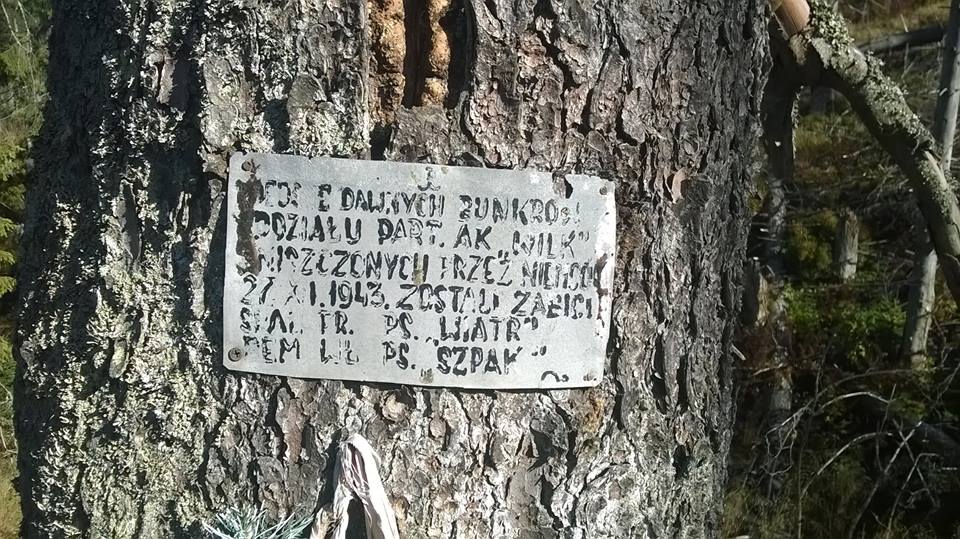 Z DAWNYCH BUNKRÓW
ODDZIAŁU PART. AK „WILK”
ZNISZCZONYCH PRZEZ NIEMCÓW
27.XI.1943. ZOSTALI ZABICI
FR. PS. „WIATR”
WŁ PS. „SZPAK”